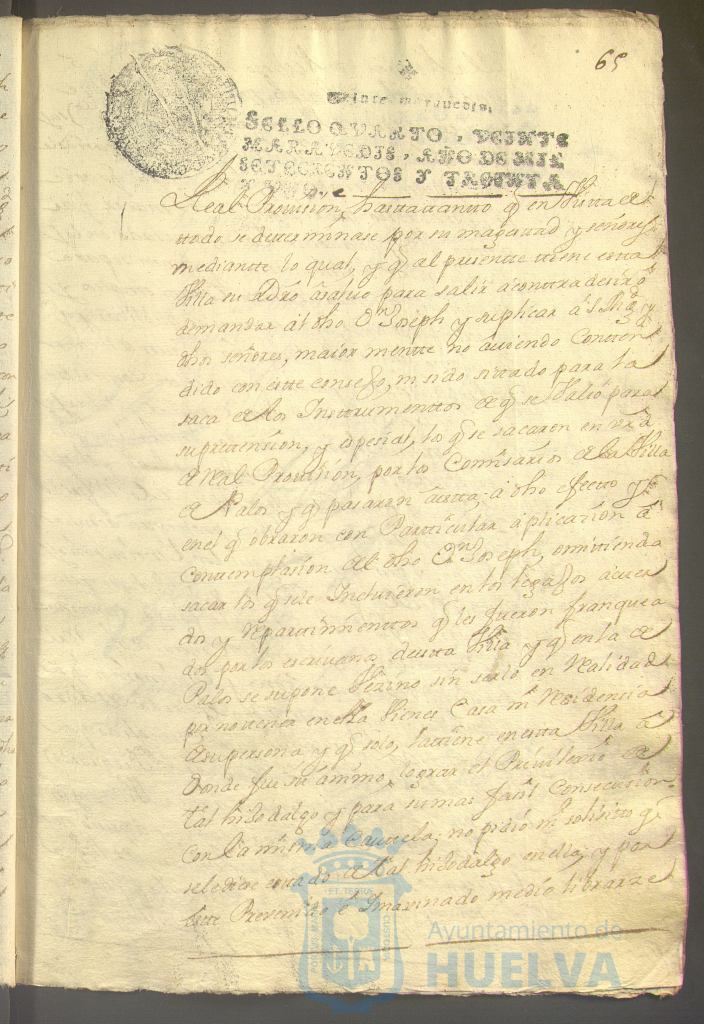 65
Veinte maravedis.
SELLO QVARTO, VEINTE
MARAVEDIS, AÑO DE MIL
SETECIENTOS Y TREINTA
Y
Real Provision, hasta tanto q̃ en Vista de
ttodo se determinase por su magestad y señores
mediantte lo qual, y q̃ al presentte ttiene estta
Villa su dro para salir á contradesir
demandar al dho Dn Joseph y suplicar á su Mag.
dhos señores, maior mentte no aviendo Conten
dido con estte consejo, ni sido sittado para la
saca de los Insttrumenttos de q̃ se Valió para
su prettension, y espesial, los q̃ se sacaron en
Real Provision, por los Comisarios de la Villa
de Palos y q̃ pasaron á estta, á dho efectto y
en el q̃ obraron con Partticular aplicazion á
conttemplasion del dho Dn Joseph omittiendo
sacar los q̃ se Incluieron en los legajos acuer
dos y Reparttimienttos q̃ les fueron franquea
dos por los escrivanos de estta Villa y q̃ en la de
Palos se supone Vezino sin serlo en Realidad
por no tener en ella Vienes Casa ni Residencia
de su persona, y q̃ solo, la ttiene en estta Villa á
donde fue su animo, lograr el Privilexio de
tal hijodalgo y para su mas facil Consecusion
con la misma Cauttela, no pidio ni solisitto q̃
se le diese esttado de tal hijodalgo en ella, y por
estte Prevenido é Imaxinado medio librarze
Ayuntamiento de
HUELVA